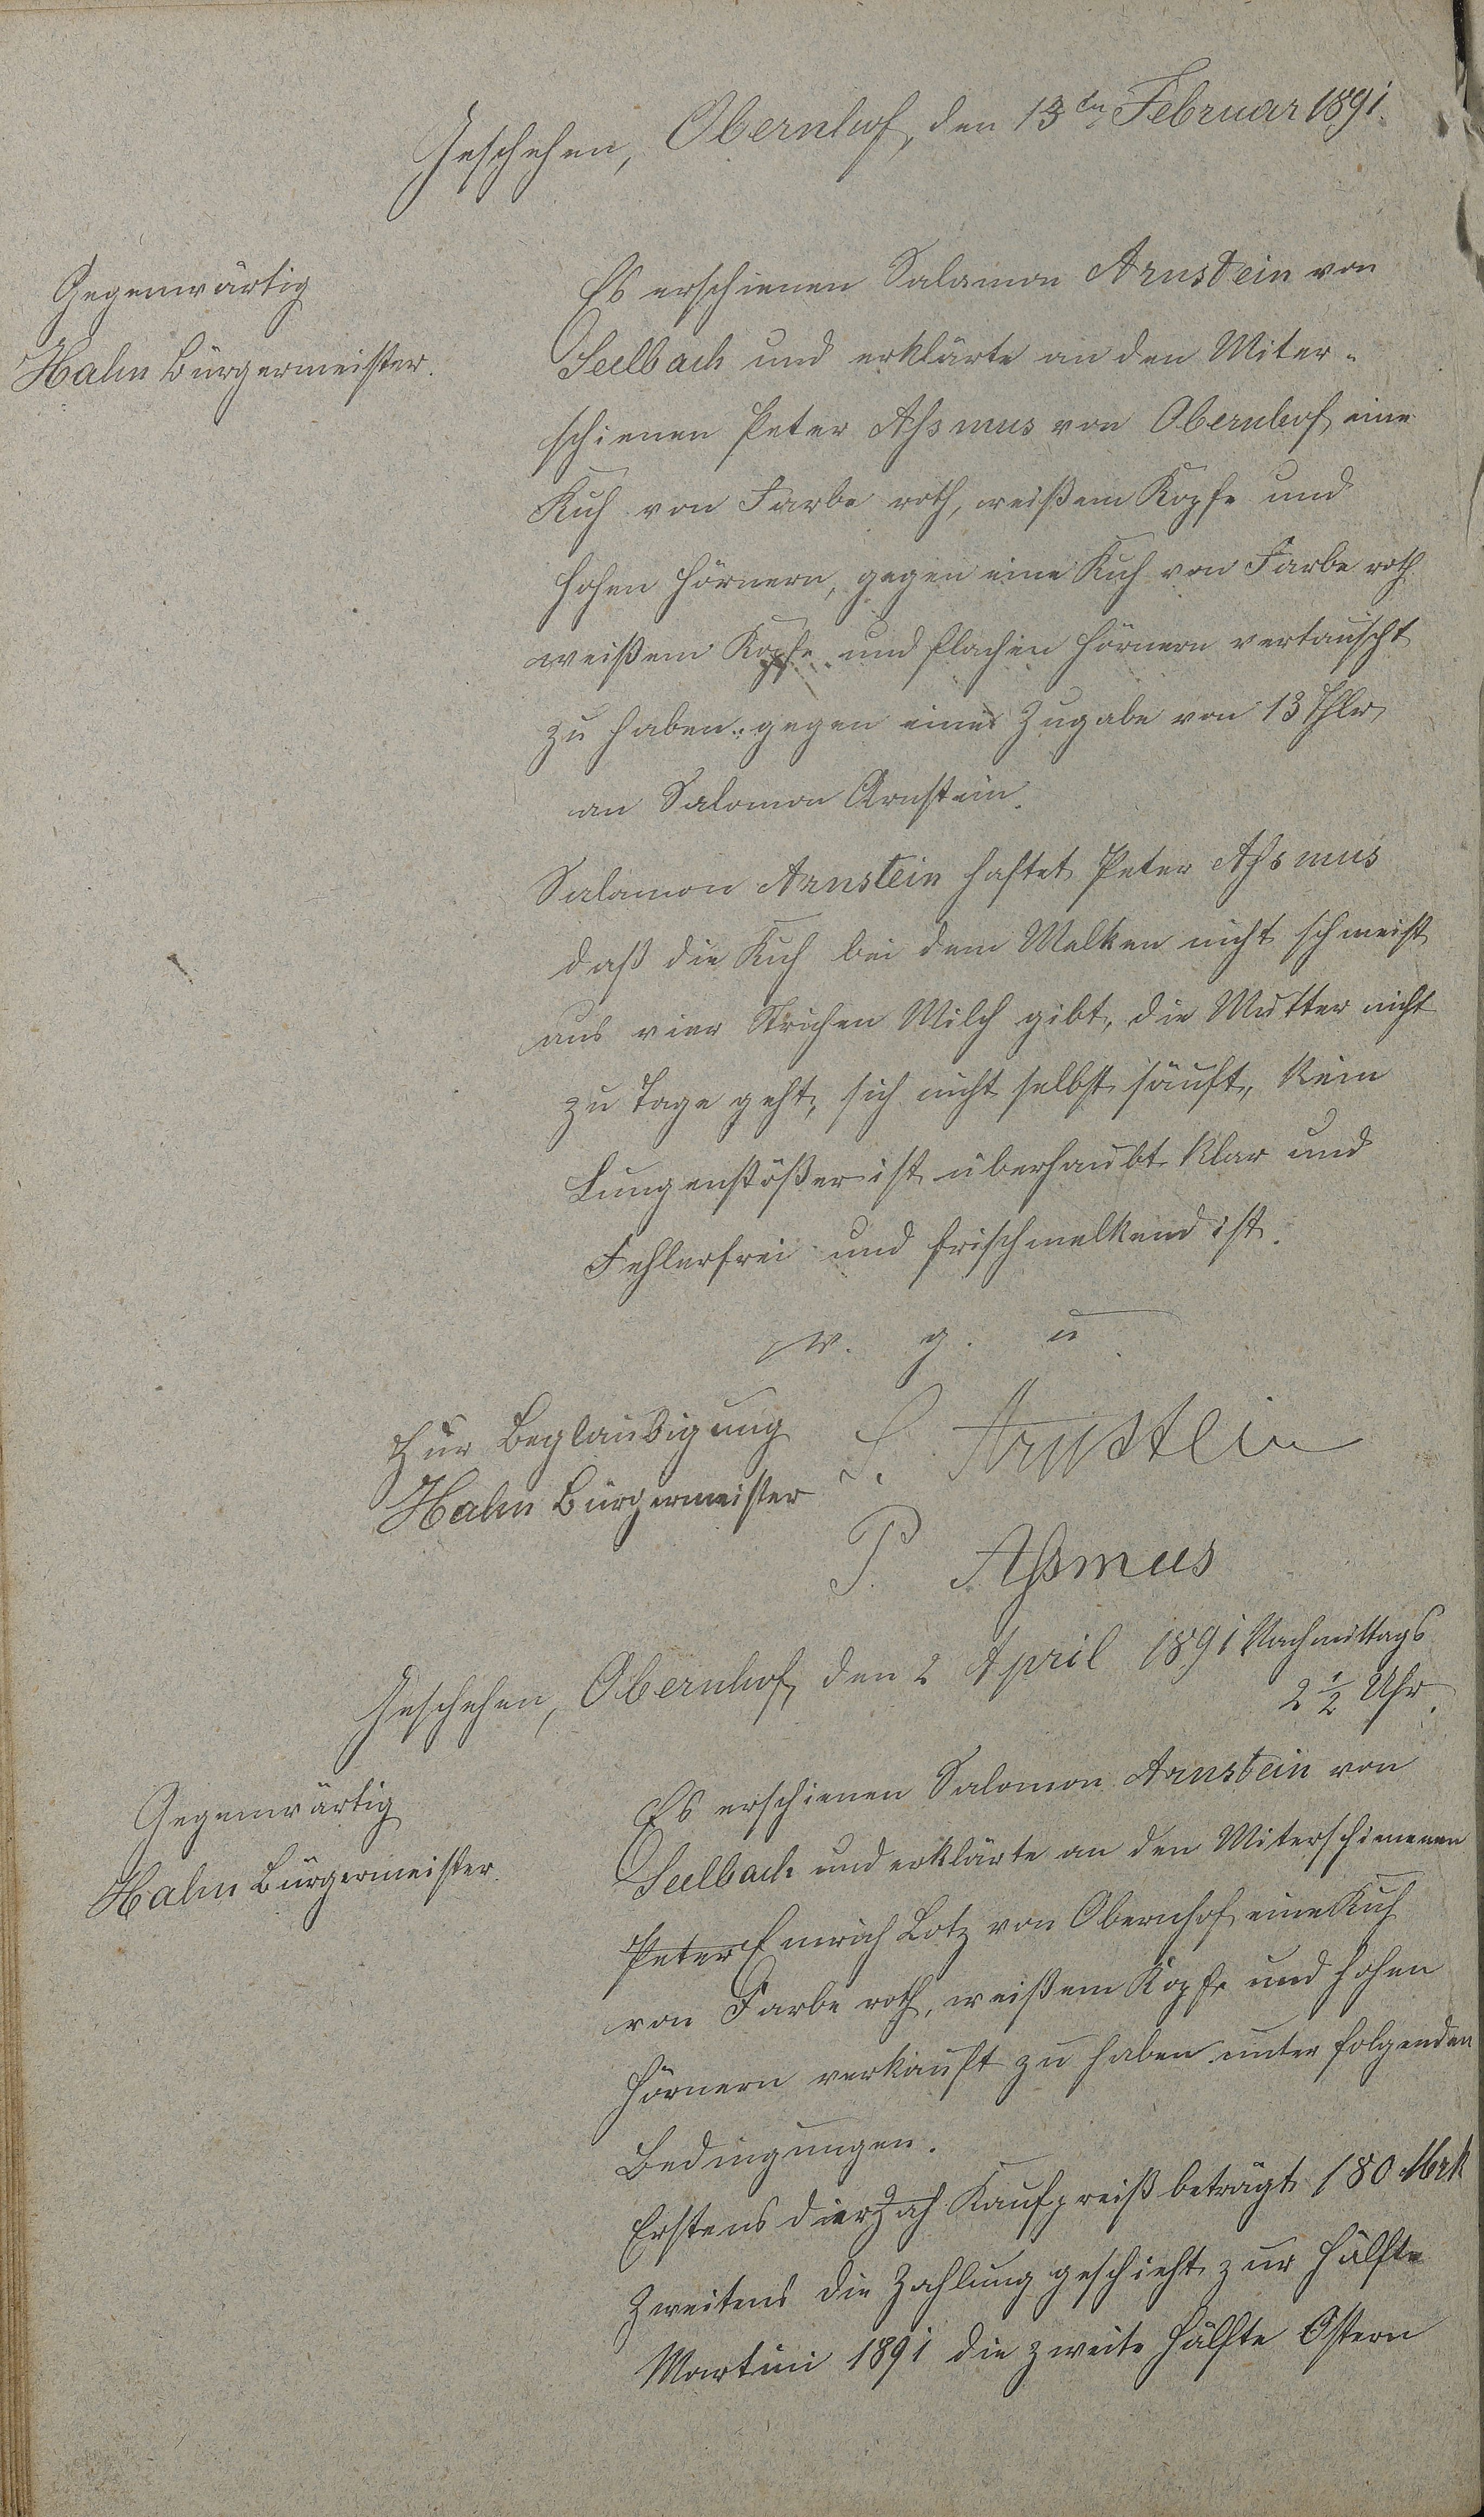 Geschehen, Obernhof, den 13ten Februar 1891.
Gegenwärtig
Hahn Bürgermeister.
Es erschienen Salamon Arnstein von
Seelbach und erklärte an den Miter-
schienen Peter Aßmus von Obernhof eine
Kuh von Farbe roth, weißem Kopfe und
hohen Hörnern, gegen eine Kuh von Farbe roth
weißem Kopfe und flachen Hörnern vertauscht
zu haben gegen eine Zugabe von 13 Thlr
an Salomon Arnstein.
Salamon Arnstein haftet Peter Aßmus
daß die Kuh bei dem Melken nicht schmeist
aus vier Strichen Milch gibt, die Mutter nicht
zu Tage geht, sich nicht selbst säuft, kein
Lungenstößer ist überhaubt klar und
Fehlerfrei und frischmelkend ist.
v. g. u
Zur Beglaubigung
Hahn Bürgermeister
S. Arnstein
P. Aßmus
Geschehen, Obernhof, den 2 April 1891 Nachmittags
2 1/2 Uhr.
Gegenwärtig
Hahn Bürgermeister.
Es erschienen Salomon Arnstein von
Seelbach und erklärte an den Miterschienenen
Peter Emrich Lotz von Obernhof eine Kuh
von Farbe roth, weißem Kopfe und hohen
Hörnern verkauft zu haben unter folgenden
Bedingungen.
Erstens der Zah Kaufpreiß beträgt 180 Mrk
Zweitens die Zahlung geschieht zur Hälfte
Martini 1891 die zweite Hälfte Ostern